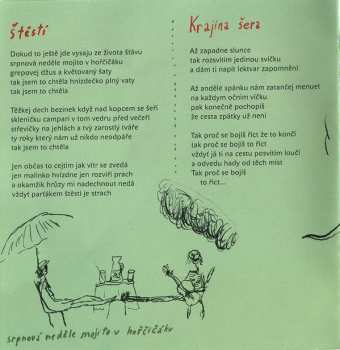 štěstí
Dokud to ještě jde vysaju ze života šťávu
srpnová neděle mojito v hořčičáku
grepovej džus a květovaný šaty
tak jsem to chtěla hnízdečko plný vaty
tak jsem to chtěla
Těžkej dech bezinek když nad kopcem se šeří
skleničku campari v tom vedru před večeří
střevíčky na jehlách a tvý zarostlý tváře
ty roky který nám už nikdo neodpáře
tak jsem to chtěla
Jen občas to cejtím jak vítr se zvedá
jen malinko hvízdne jen rozvíří prach
a okamžik hrůzy mi nadechnout nedá
vždyť parťákem štěstí je strach
Krajina šera
Až zapadne slunce
tak rozsvítím jedinou svíčku
a dám ti napít lektvar zapomnění
Až anděle spánku nám zatančej menuet
na každým očním víčku
pak konečně pochopíš
že cesta zpátky už není
Tak proč se bojíš říct že to končí
tak proč se bojíš to říct
vždyť já ti na cestu posvítím loučí
a odvedu hady od těch míst
Tak proč se bojíš
to říct...
srpnová neděle mojito v hořčičáku